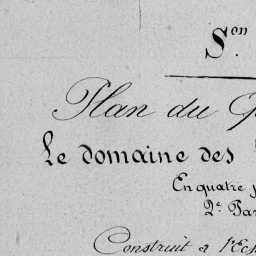 Son.
Plan du
Le domaine des
En quatre
2e. Par
Construit a l'Ech